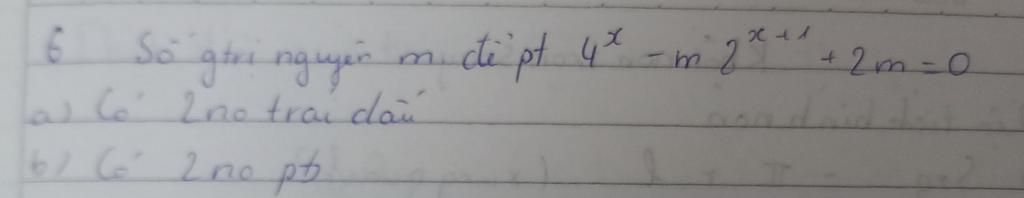 6 Số gtri nguyên m để pt 4^x - m 2^{x+1} + 2m = 0
a) Có 2 no trái dấu
b) Có 2 no pb